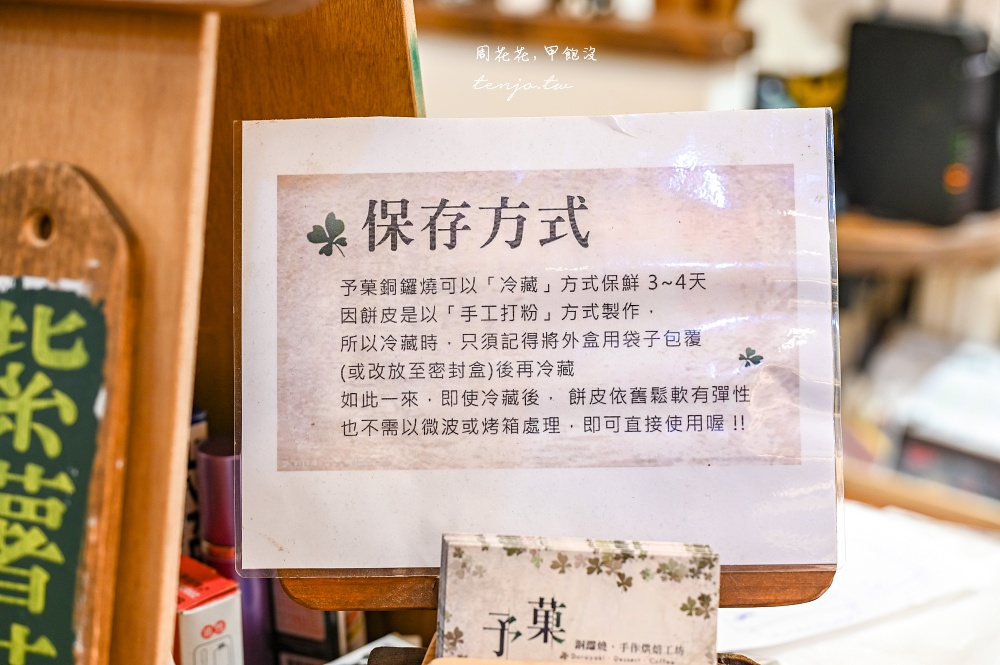 周花花,甲飽沒
tenjo.tw
保存方式
予菓銅鑼燒可以「冷藏」方式保鮮 3~4天
因餅皮是以「手工打粉」方式製作，
所以冷藏時，只須記得將外盒用袋子包覆
(或改放至密封盒)後再冷藏
如此一來，即使冷藏後， 餅皮依舊鬆軟有彈性
也不需以微波或烤箱處理，即可直接使用喔 !!
予菓
銅鑼燒・手作烘焙工坊
Dorayaki · Dessert · Coffee